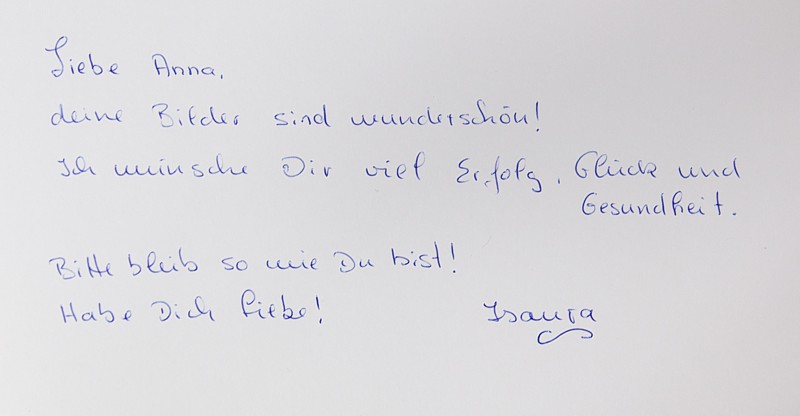 Liebe Anna,
deine Bilder sind wunderschön!
Ich wünsche Dir viel Erfolg, Glück und
Gesundheit.
Bitte bleib so wie Du bist!
Habe Dich Liebe!
Isaura